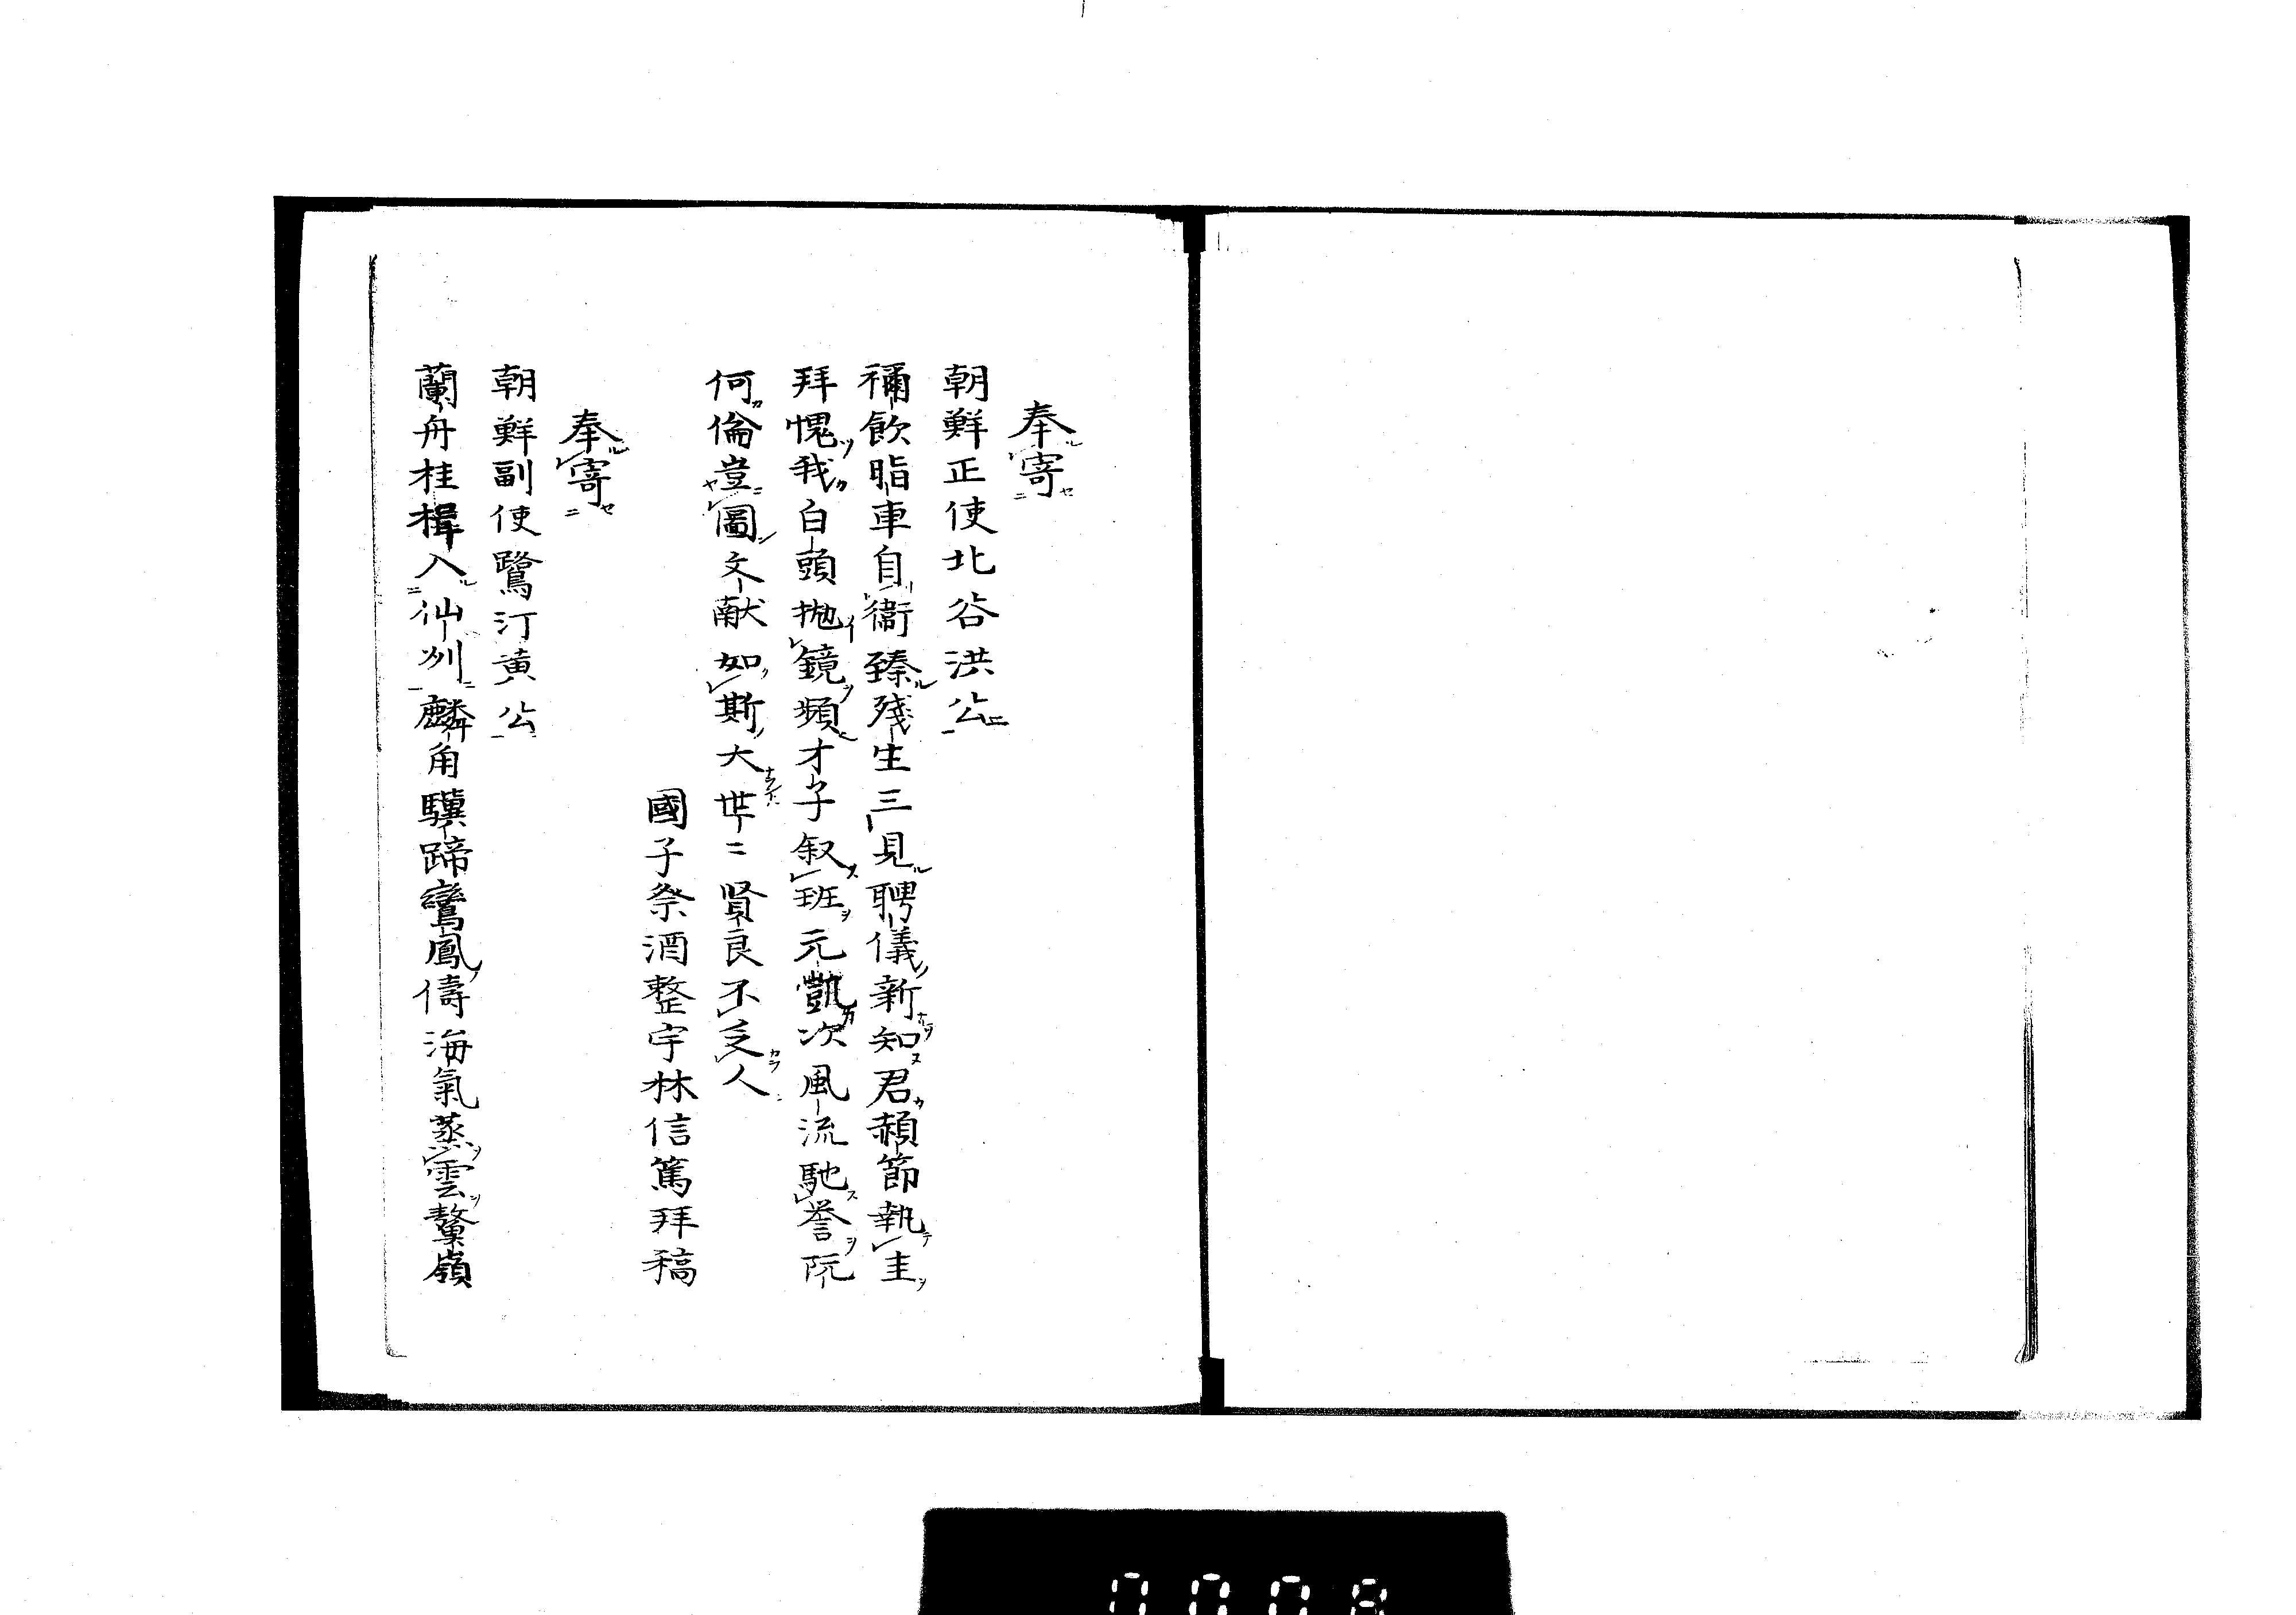 奉寄
朝鮮正使北谷洪公
禰飲脂車自衞臻殘生三見聘儀新知君頳節執圭
拜愧我白頭抛鏡頻才子叙班元凱次風流馳誉阮
何倫豈圖文献如斯大世〻賢良不乏人
國子祭酒整宇林信篤拜稿
奉寄
朝鮮副使鷺汀黄公
蘭舟桂楫入仙洲麟角驥蹄鸞鳳儔海氣蒸雲鼇嶺
0008